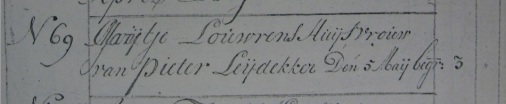 N 69 Marijtje Louwrens Huijsvrouw
van Pieter Leijdekker Den 5 Maij begr: 3